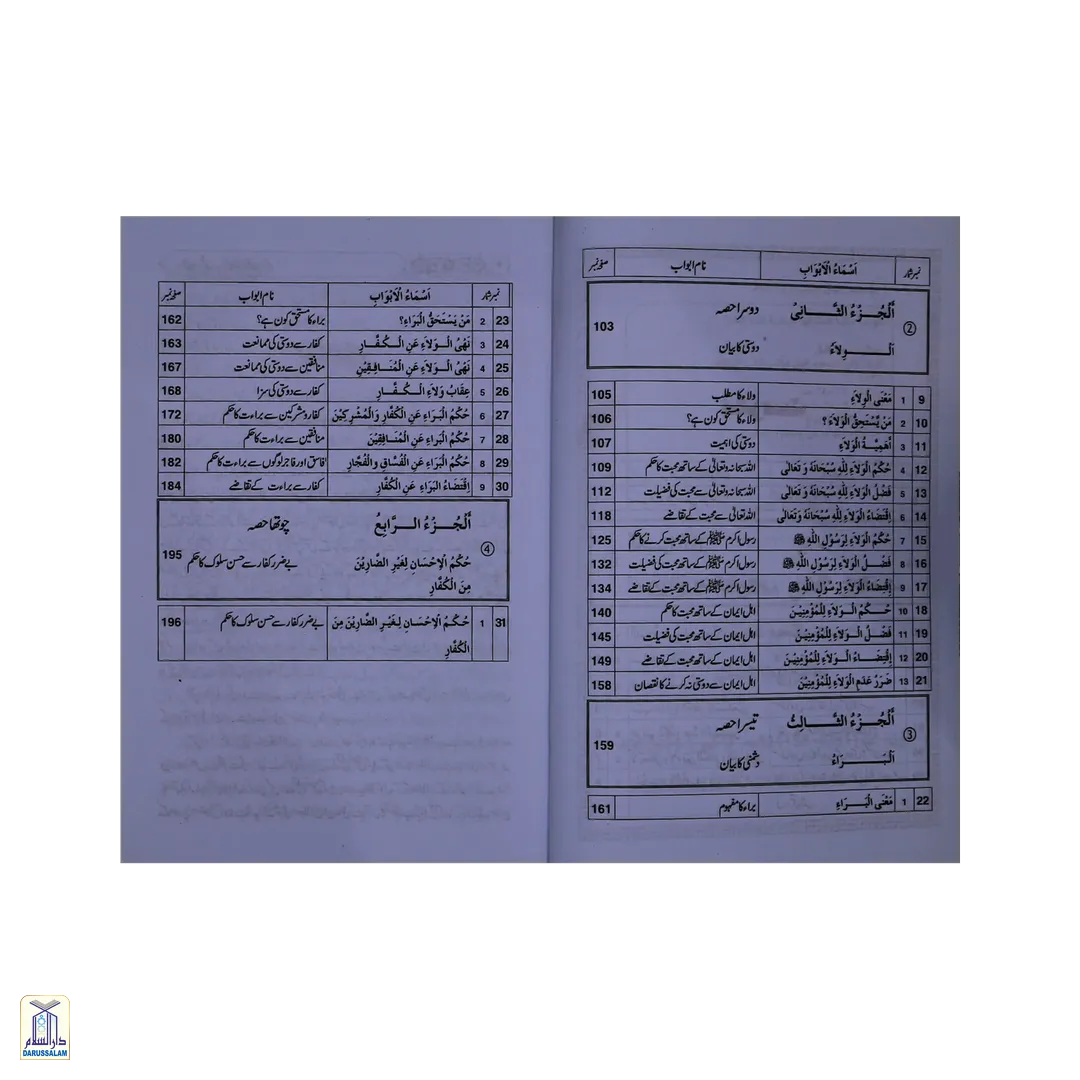 نمبر شمار اَسْمَاءُ الْاَبْوَابِ نام ابواب صفحہ نمبر
② اَلْجُزْءُ الثَّانِیْ دوسرا حصہ 103
اَلْوِلَاءُ دوستی کا بیان
9 1 مَعْنَی الْوِلَاءِ ولاء کا مطلب 105
10 2 مَنْ یَّسْتَحِقُّ الْوَلَاءَ ؟ ولاء کا مستحق کون ہے؟ 106
11 3 اَهَمِیَّةُ الْوَلَاءِ دوستی کی اہمیت 107
12 4 حُکْمُ الْوَلَاءِ لِلّٰهِ سُبْحَانَهٗ وَ تَعَالٰی اللہ سبحانہ و تعالٰی کے ساتھ محبت کا حکم 109
13 5 فَضْلُ الْوَلَاءِ لِلّٰهِ سُبْحَانَهٗ وَ تَعَالٰی اللہ سبحانہ و تعالٰی سے محبت کی فضیلت 112
14 6 اِقْتِضَاءُ الْوَلَاءِ لِلّٰهِ سُبْحَانَهٗ وَتَعَالٰی اللہ تعالٰی سے محبت کے تقاضے 118
15 7 حُکْمُ الْوَلَاءِ لِرَسُوْلِ اللّٰهِ ﷺ رسول اکرم ﷺ کے ساتھ محبت کرنے کا حکم 125
16 8 فَضْلُ الْوَلَاءِ لِرَسُوْلِ اللّٰهِ ﷺ رسول اکرم ﷺ کے ساتھ محبت کی فضیلت 132
17 9 اِقْتِضَاءُ الْوَلَاءِ لِرَسُوْلِ اللّٰهِ ﷺ رسول اکرم ﷺ کے ساتھ محبت کے تقاضے 134
18 10 حُکْمُ الْوَلَاءِ لِلْمُؤْمِنِیْنَ اہل ایمان کے ساتھ محبت کا حکم 140
19 11 فَضْلُ الْوَلَاءِ لِلْمُؤْمِنِیْنَ اہل ایمان کے ساتھ محبت کی فضیلت 145
20 12 اِقْتِضَاءُ الْوَلَاءِ لِلْمُؤْمِنِیْنَ اہل ایمان کے ساتھ محبت کے تقاضے 149
21 13 ضَرَرُ عَدَمِ الْوَلَاءِ لِلْمُؤْمِنِیْنَ اہل ایمان سے دوستی نہ کرنے کا نقصان 158
③ اَلْجُزْءُ الثَّالِثُ تیسرا حصہ 159
اَلْبَرَاءُ دشمنی کا بیان
22 1 مَعْنَی الْبَرَاءِ براء کا مفہوم 161
نمبر شمار اَسْمَاءُ الْاَبْوَابِ نام ابواب صفحہ نمبر
23 2 مَنْ یَسْتَحِقُّ الْبَرَاءَ؟ براء کا مستحق کون ہے؟ 162
24 3 نَهْیُ الْوَلَاءِ عَنِ الْکُفَّارِ کفار سے دوستی کی ممانعت 163
25 4 نَهْیُ الْوَلَاءِ عَنِ الْمُنَافِقِیْنِ منافقین سے دوستی کی ممانعت 167
26 5 عِقَابُ وَلَاءِ الْکُفَّارِ کفار سے دوستی کی سزا 168
27 6 حُکْمُ الْبَرَاءِ عَنِ الْکُفَّارِ وَالْمُشْرِکِیْنَ کفار و مشرکین سے براءت کا حکم 172
28 7 حُکْمُ الْبَرَاءِ عَنِ الْمُنَافِقِیْنَ منافقین سے براءت کا حکم 180
29 8 حُکْمُ الْبَرَاءِ عَنِ الْفُسَّاقِ وَالْفُجَّارِ فاسق اور فاجر لوگوں سے براءت کا حکم 182
30 9 اِقْتِضَاءُ الْبَرَاءِ عَنِ الْکُفَّارِ کفار سے براءت کے تقاضے 184
④ اَلْجُزْءُ الرَّابِعُ چوتھا حصہ 195
حُکْمُ الْاِحْسَانِ لِغَیْرِ الضَّارِیْنَ بے ضرر کفار سے حسن سلوک کا حکم
مِنَ الْکُفَّارِ
31 1 حُکْمُ الْاِحْسَانِ لِغَیْرِ الضَّارِیْنَ مِنَ بے ضرر کفار سے حسن سلوک کا حکم 196
الْکُفَّارِ
دارالسلام
DARUSSALAM